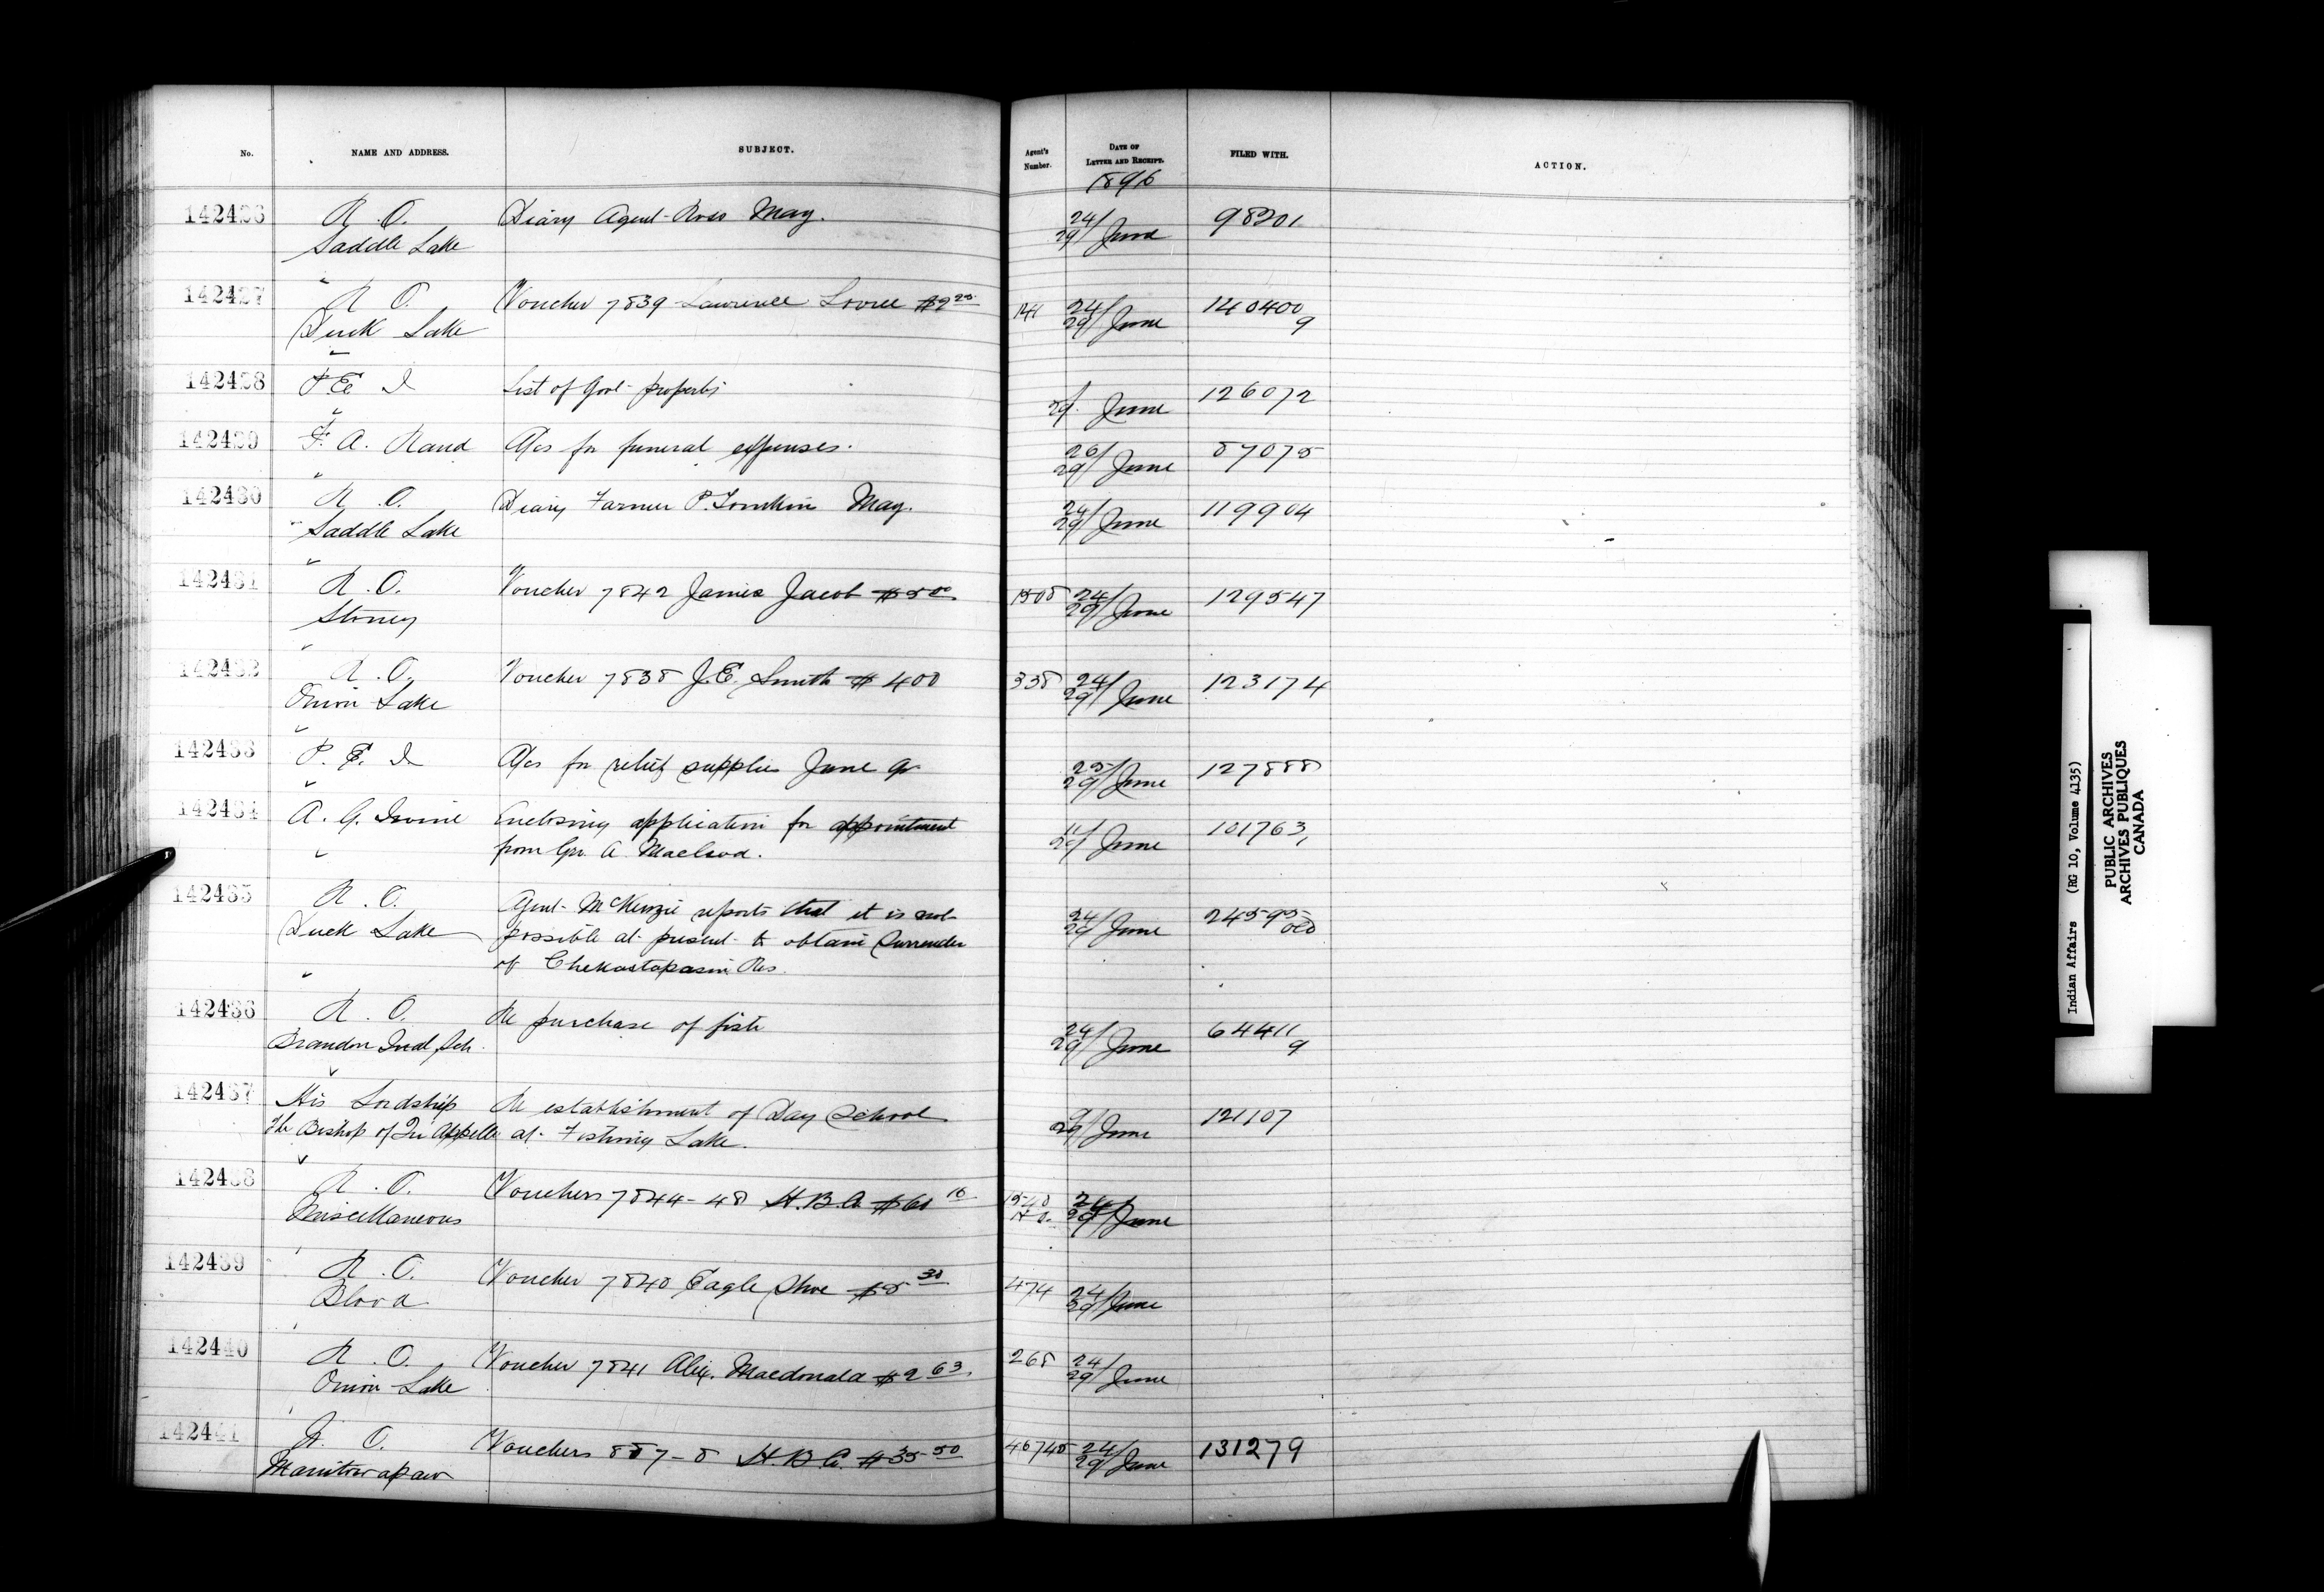 No. NAME AND ADDRESS. SUBJECT. Agent's Number. DATE OF LETTER AND RECEIPT. FILED WITH. ACTION.
1896
142426 R. O. Diary Agent Ross May. 24/29 June 98201
Saddle Lake
142427 R O. Voucher 7839 Lawrence $2 25 141 24/29 June 140400
Duck Lake 9
142428 P E I List of Govt property 29 June 126072
142429 F. A. Rand A/cs for funeral expenses. 26/29 June 87075
142430 R. O. Diary Farmer P. Tomkins May. 24/29 June 119904
Saddle Lake
142431 R. O. Voucher 7842 James Jacob $5 00 1508 24/29 June 129547
Stoney
142432 R. O. Voucher 7838 J. E. Smith $ 400 338 24/29 June 123174
Onion Lake
142433 P. E. I A/cs for relief supplies June qr 25/29 June 127888
142434 A. G. Irvine Enclosing application for appointment 11/29 June 101763
from A. Macleod.
142435 R. O. Agent McKenzie reports that it is not 24/29 June 24595
Duck Lake possible at present to obtain surrender old
of Chekastapasin Res.
142436 R. O. Re purchase of fish 24/29 June 64411
Brandon Indl Sch. 9
142437 His Lordship Re establishment of Day School 9/29 June 121107
The Bishop of Qu'Appelle at Fishing Lake.
142438 R. O. Vouchers 7844-48 H. B. Co. $60 16 1540 24/29 June
Miscellaneous H O.
142439 R. O. Voucher 7840 Eagle Shoe $5 30 474 24/29 June
Blood
142440 R. O. Voucher 7841 Alex. Macdonald $2 63. 268 24/29 June
Onion Lake
142441 R. O. Vouchers 887-8 H. B Co. $35 50 24/29 June 131279
Manitowapaw
Indian Affairs (RG 10, Volume 4135)
PUBLIC ARCHIVES
ARCHIVES PUBLIQUES
CANADA